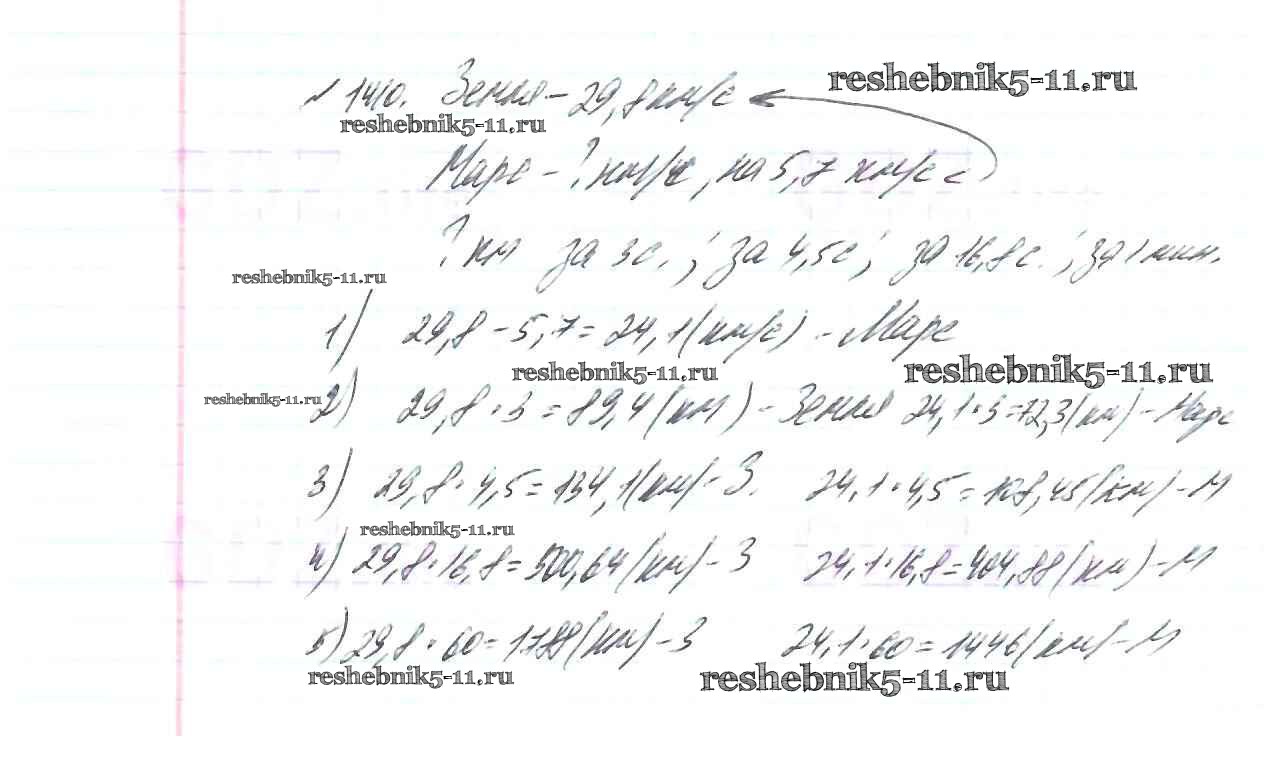 № 1410. Земля – 29,8 км/с reshebnik5-11.ru
reshebnik5-11.ru
Марс – ? км/с, на 5,7 км/с <
? км за 3с.; за 4,5с; за 16,8с.; за 1 мин.
reshebnik5-11.ru
1) 29,8 – 5,7 = 24,1 (км/с) – Марс
reshebnik5-11.ru reshebnik5-11.ru
reshebnik5-11.ru
2) 29,8 · 3 = 89,4 (км) – Земля 24,1 · 3 = 72,3 (км) – Марс
3) 29,8 · 4,5 = 134,1 (км) – З. 24,1 · 4,5 = 108,45 (км) – М
reshebnik5-11.ru
4) 29,8 · 16,8 = 500,64 (км) – З 24,1 · 16,8 = 404,88 (км) – М
5) 29,8 · 60 = 1788 (км) – З 24,1 · 60 = 1446 (км) – М
reshebnik5-11.ru reshebnik5-11.ru